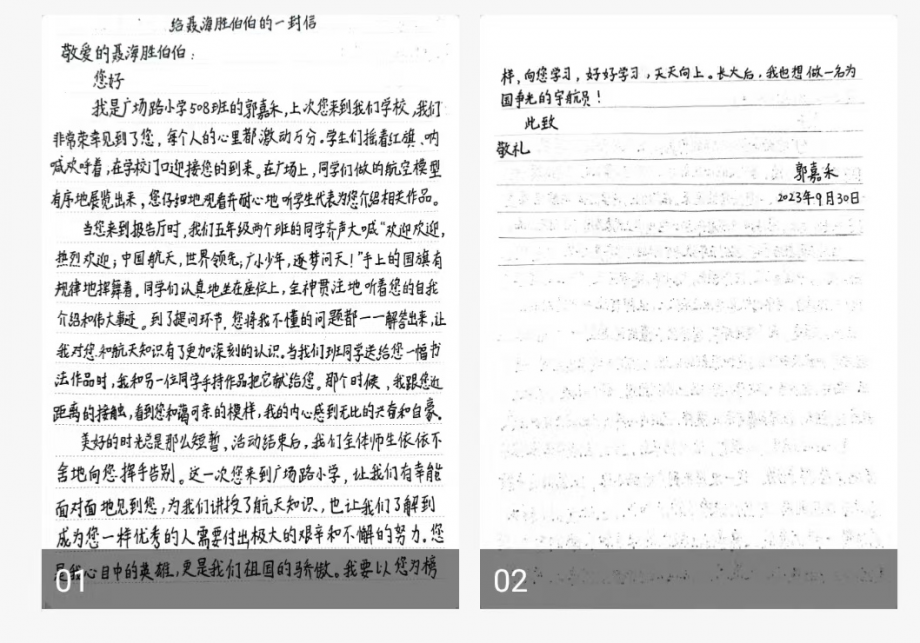 给聂海胜伯伯的一封信
敬爱的聂海胜伯伯：
您好
我是广场路小学508班的郭嘉禾，上次您来到我们学校，我们
非常荣幸见到了您，每个人的心里都激动万分。学生们摇着红旗、呐
喊欢呼着，在学校门口迎接您的到来。在广场上，同学们做的航空模型
有序地展览出来，您仔细地观看并耐心地听学生代表为您介绍相关作品。
当您来到报告厅时，我们五年级两个班的同学齐声大喊“欢迎欢迎，
热烈欢迎；中国航天，世界领先；广小少年，逐梦问天！”手上的国旗有
规律地挥舞着。同学们认真地坐在座位上，全神贯注地听着您的自我
介绍和伟大事迹。到了提问环节，您将我不懂的问题都一一解答出来，让
我对您和航天知识有了更加深刻的认识。当我们班同学送给您一幅书
法作品时，我和另一位同学手持作品把它献给您。那个时候，我跟您近
距离的接触，看到您和蔼可亲的模样，我的内心感到无比的兴奋和自豪。
美好的时光总是那么短暂，活动结束后，我们全体师生依依不
舍地向您挥手告别。这一次您来到广场路小学，让我们有幸能
面对面地见到您，为我们讲授了航天知识，也让我们了解到
成为您一样优秀的人需要付出极大的艰辛和不懈的努力。您
是我心目中的英雄，更是我们祖国的骄傲。我要以您为榜
01
样，向您学习，好好学习，天天向上。长大后，我也想做一名为
国争光的宇航员！
此致
敬礼
郭嘉禾
2023年9月30日
02